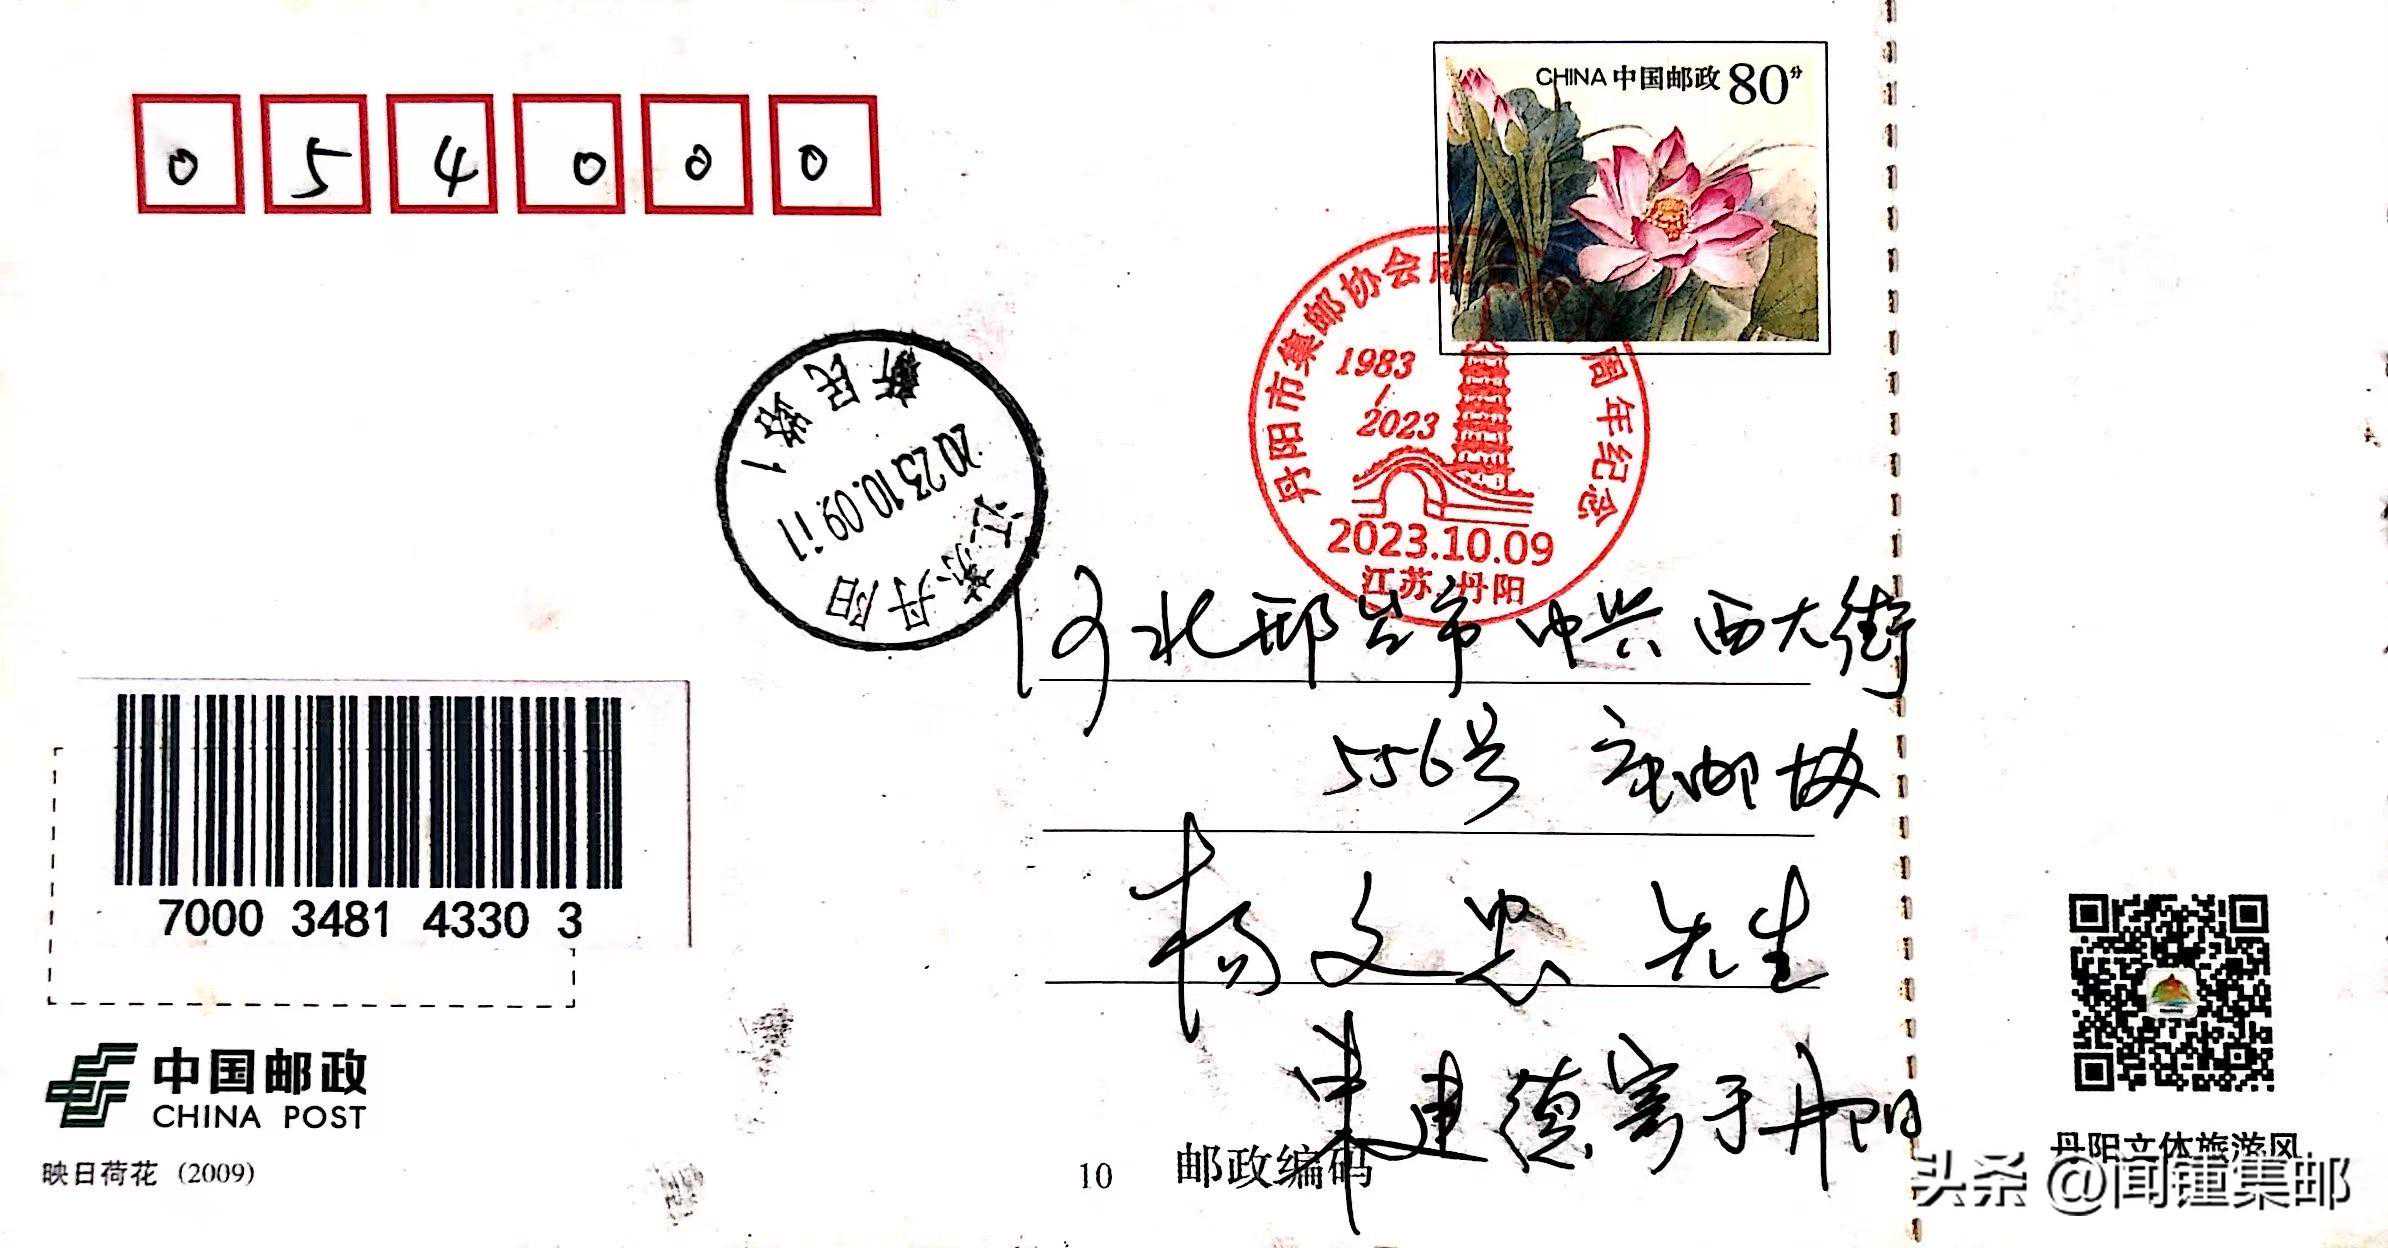 054000
CHINA 中国邮政 80分
丹阳市集邮协会成 周年纪念
1983
2023
2023.10.09
江苏.丹阳
新民路1
2023.10.09.11
江苏.丹阳
河北邢台市中兴西大街
556号 市邮协
杨文忠 先生
朱建德寄于丹阳
7000 3481 4330 3
中国邮政
CHINA POST
映日荷花 (2009)
10
邮政编码
丹阳立体旅游风
头条 @闻锺集邮